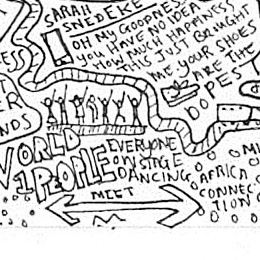 SARAH
SNEDEKE
OH MY GOODNESS
YOU HAVE NO IDEA
HOW MUCH HAPPINESS
THIS JUST BROUGHT
ME YOUR SHOES
ARE THE
DOPEST
NDS
WORLD
1 PEOPLE
EVERYONE
ON STAGE
DANCING
MEET
AFRICA
CONNEC-
TION